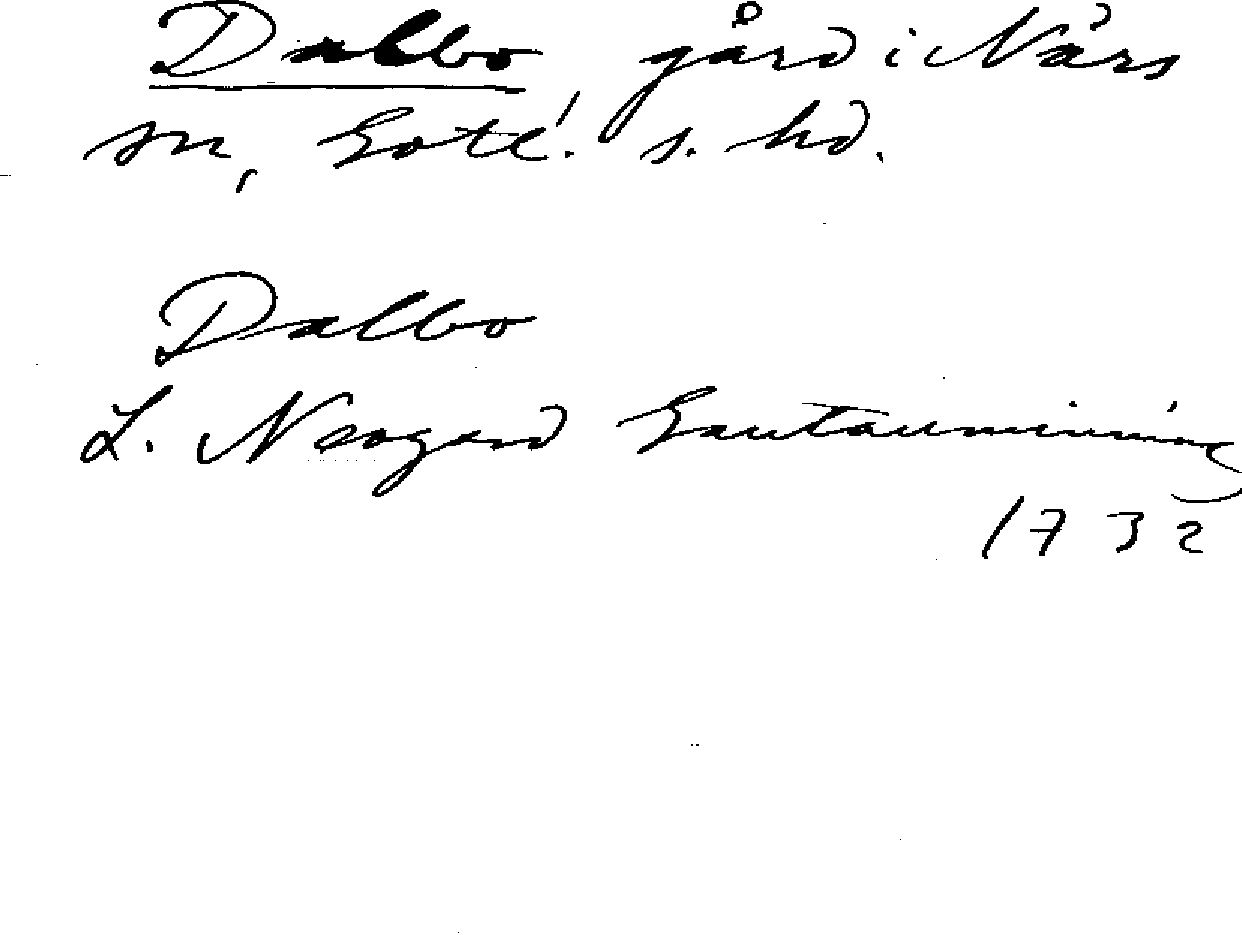 Dalbo gård i När s
sn, Gotl. s. hd.
Dalbo
L. Neogard Gautauminning
1732